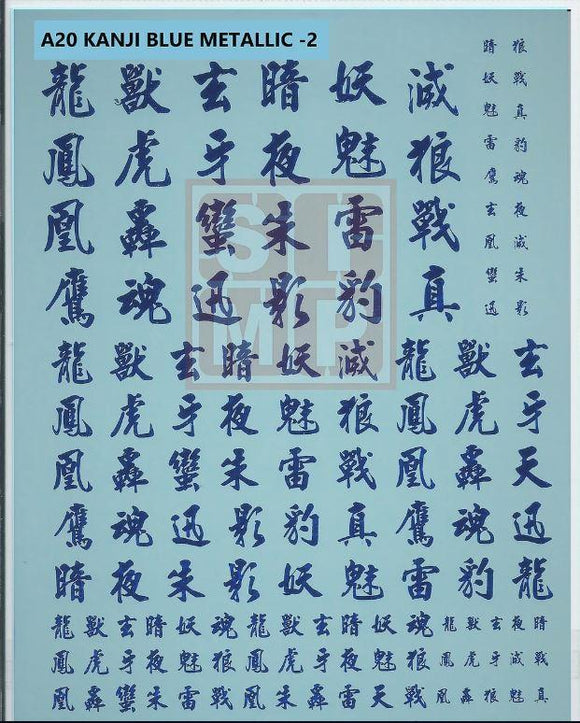 A20 KANJI BLUE METALLIC -2
龍 獸 玄 暗 妖 滅
鳳 虎 牙 夜 魅 狼
凰 轟 蠻 朱 雷 戰
鷹 魂 迅 影 豹 真
暗 狼
妖 戰
魅 真
雷 豹
鷹 魂
玄 夜
凰 滅
蠻 朱
迅 影
SIMP
龍 獸 玄 暗 妖 滅 龍 獸 玄
鳳 虎 牙 夜 魅 狼 鳳 虎 牙
凰 轟 蠻 朱 雷 戰 凰 轟 天
鷹 魂 迅 影 豹 真 鷹 魂 迅
暗 夜 朱 影 妖 魅 雷 豹 龍
龍 獸 玄 暗 妖 魂 龍 獸 玄 暗 妖 魂 龍 獸 玄 夜 暗
鳳 虎 牙 夜 魅 狼 鳳 虎 牙 夜 魅 狼 鳳 虎 牙 滅 戰
凰 轟 蠻 朱 雷 戰 凰 轟 朱 雷 天 戰 凰 轟 狼 魅 真